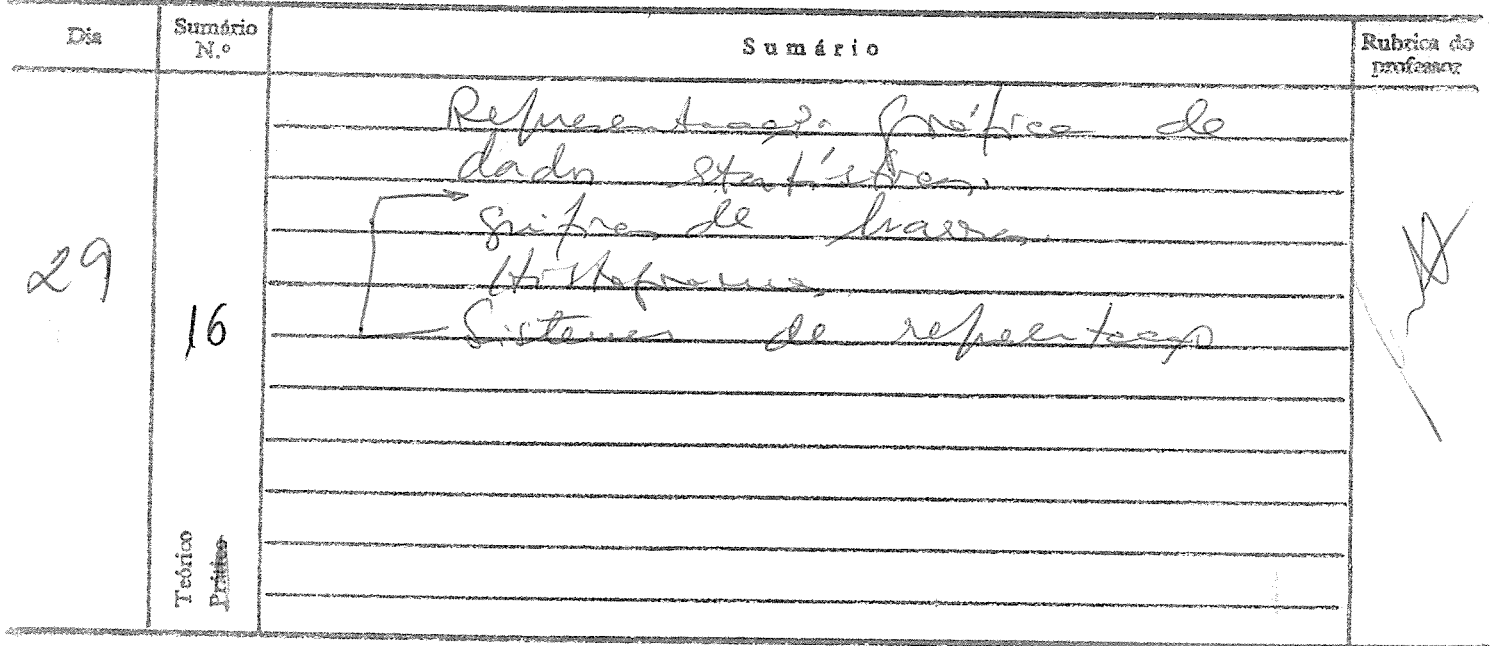 Dia
Sumário N.º
Sumário
Rubrica do professor
29
16
Representação gráfica de
dados estatísticos.
Gráficos de barras.
Histogramas
Sistemas de representação
Teórico
Prático